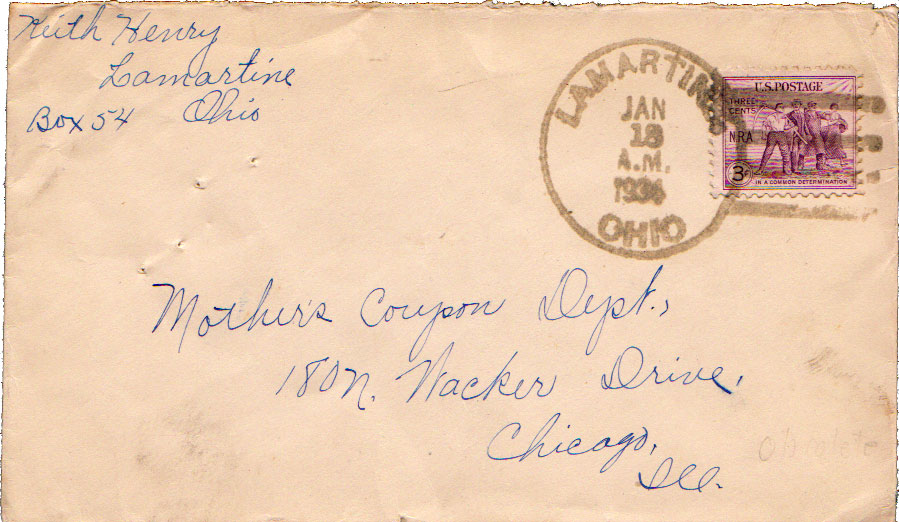 Keith Henry
Lamartine
Box 54 Ohio
LAMARTINE
JAN
18
A.M.
1934
OHIO
U.S. POSTAGE
THREE
CENTS
N.R.A.
3¢
IN A COMMON DETERMINATION
Mother's Coupon Dept.,
180 N. Wacker Drive,
Chicago,
Ill.